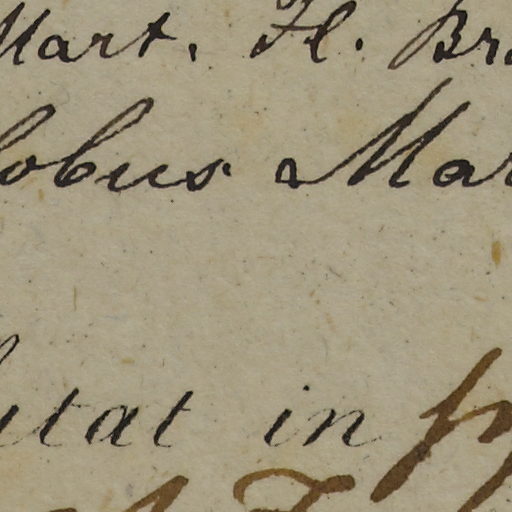 Mart. Fl. Br
lobus Mar
itat in